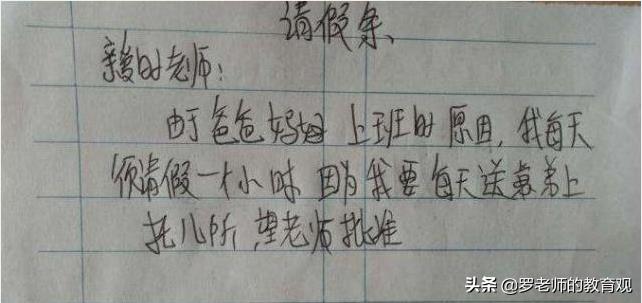 请假条
亲爱的老师：
由于爸爸妈妈上班的原因，我每天
须请假一个小时 因为我要每天送弟弟上
托儿所，望老师批准
头条 @罗老师的教育观